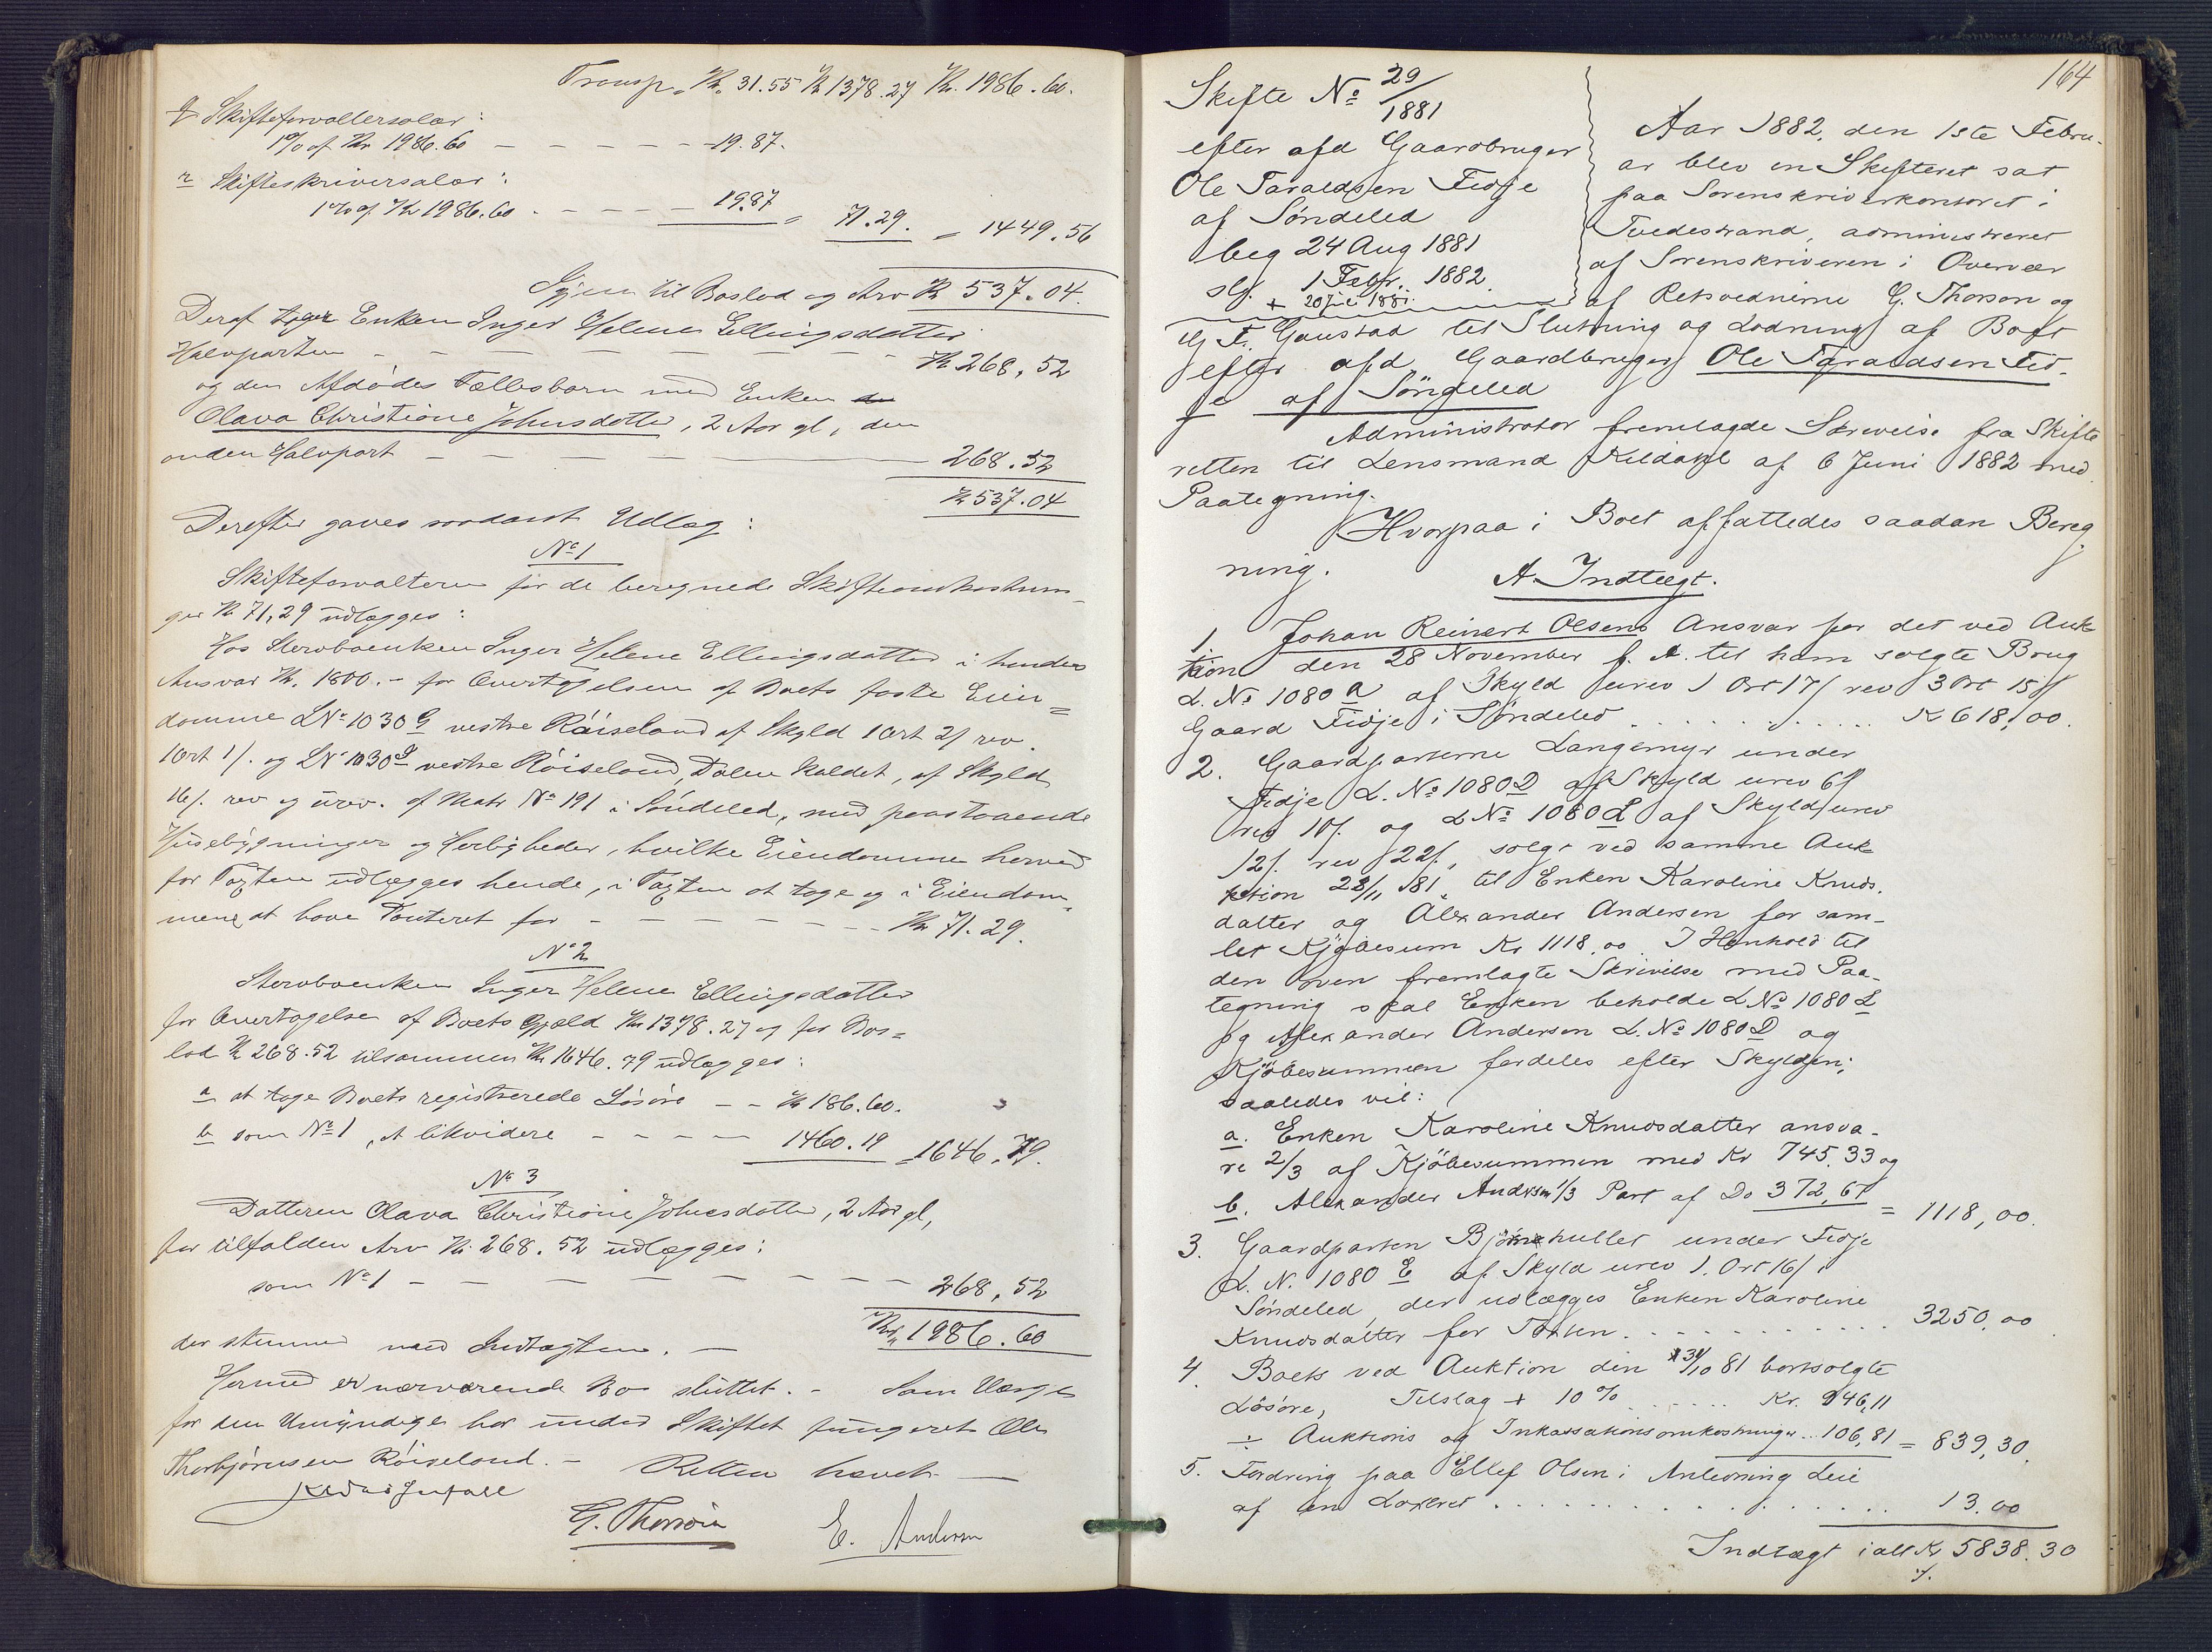 Transp. Kr. 31.55 Kr 1378.27 Kr. 1986.60.
q Skifteforvaltersalær:
1% af Kr 1986.60 — — — — — 19.87.
r Skifteskriversalær:
1% af Kr 1986.60 . — — — — 19.87 = 71.29. = 1449.56
Igjen til Boslod og Arv Kr 537.04.
Deraf tager Enken Inger Helene Ellingsdatter
Halvparten — — — — — — — Kr 268,52
og den Afdødes Fællesbarn med Enken
Olava Christiane Johnsdatter, 2 Aar gl, den
anden Halvpart — — — — 268.52
Kr 537.04
Derefter gaves saadant Udlæg:
No 1
Skifteforvalteren for de beregnede Skifteomkostnin-
ger Kr 71,29 udlægges:
Hos Stervboenken Inger Helene Ellingsdatter i hendes
Ansvar Kr. 1800.- for Overtagelsen af Boets faste Eien=
domme LNo 1030 G vestre Röiseland af Skyld 1 Ort 2/ rev.
1 Ort 1/. og LNo 1030 g vestre Röiseland, Dalen kaldet, af Skyld
16/. rev og urev. af Matr No 191 i Söndeled, med paastaaende
Husebygninger og Herligheder, hvilke Eiendomme herved
for Taxten udlægges hende, i Taxten at tage og i Eiendom-
mene at have Panteret for — — — — — Kr 71.29.
No 2
Stervboenken Inger Helene Ellingsdatter
for Overtagelse af Boets Gjæld Kr 1378.27 og for Bos=
lod Kr 268.52 tilsammen Kr 1646.79 udlægges:
a at tage Boets registrerede Lösöre — — Kr 186.60.
b som No 1, at likvidere — — — — 1460.19 = 1646.79.
No 3
Datteren Olava Christiane Johnsdatter, 2 Aar gl,
for tilfalden Arv Kr. 268.52 udlægges:
som No 1 — — — — — — — — 268,52
Kr. 1986.60
der stemmer med Indtægten. —
Hermed er nærværende Bo sluttet. - Som Værge
for den Umyndige har under Skiftet fungeret Ole
Thorbjørnsen Röiseland. - Retten hævet —
G. Thorson E. Andersen
164
Skifte No 29/1881
efter afd Gaardbruger
Ole Taraldsen Fidje
af Søndeled
beg 24 Aug 1881
slt. 1 Febr. 1882.
Aar 1882, den 1ste Febru-
ar blev en Skifteret sat
paa Sorenskriverkontoret i
Tvedestrand, administreret
af Sorenskriveren i Overvær
af Retsvidnerne G. Thorson og
G. F. Gaustad til Slutning og Lodning af Boet
efter afd. Gaardbruger Ole Taraldsen Fid-
je af Söndeled
Administrator fremlagde Skrivelse fra Skifte
retten til Lensmand Kildahl af 6 Juni 1882 med
Paategning.
Hvorpaa i Boet affattedes saadan Bereg
ning.
A. Indtægt.
1. Johan Reinert Olsens Ansvar for det ved Auk
tion den 28 November f. A. til ham solgte Brug
L. No 1080 a af Skyld urev 1 Ort 17/ rev 3 Ort 15/
Gaard Fidje i Söndeled . . . . . . . . . Kr 618,00.
2. Gaardparterne Langemyr under
Fidje L. No 1080 D af Skyld urev 6/
rev 10/. og L No 1080 L af Skyld urev
12/. rev 22/., solgt ved samme Auk
tion 28/11 81 til Enken Karoline Knuds.
datter og Alexander Andersen for sam-
let Kjøbesum Kr 1118.00. I Henhold til
den oven fremlagte Skrivelse med Paa-
tegning skal Enken beholde L No 1080 L
og Alexander Andersen L. No 1080 D og
Kjöbesummen fordeles efter Skylden;
saaledes vil:
a. Enken Karoline Knudsdatter ansva-
re 2/3 af Kjöbesummen med Kr 745.33 og
b. Alexander Andersen 1/3 Part af Do 372,67 = 1118,00.
3. Gaardparten Bjørnehullet under Fidje
L. N. 1080 E af Skyld urev 1. Ort 16/ i
Söndeled, der udlægges Enken Karoline
Knudsdatter for Taxten . . . . . . . . . . 3250,00
4. Boets ved Auktion den 31/10 81 bortsolgte
Lösöre, Tilslag + 10% . . . . . . Kr. 946,11
÷ Auktions og Inkassationsomkostninger.. 106,81 = 839,30.
5. Fordring paa Ellef Olsen i Anledning Leie
af en . . . . . . . . . . . . . 13.00
Indtægt i alt Kr 5838.30